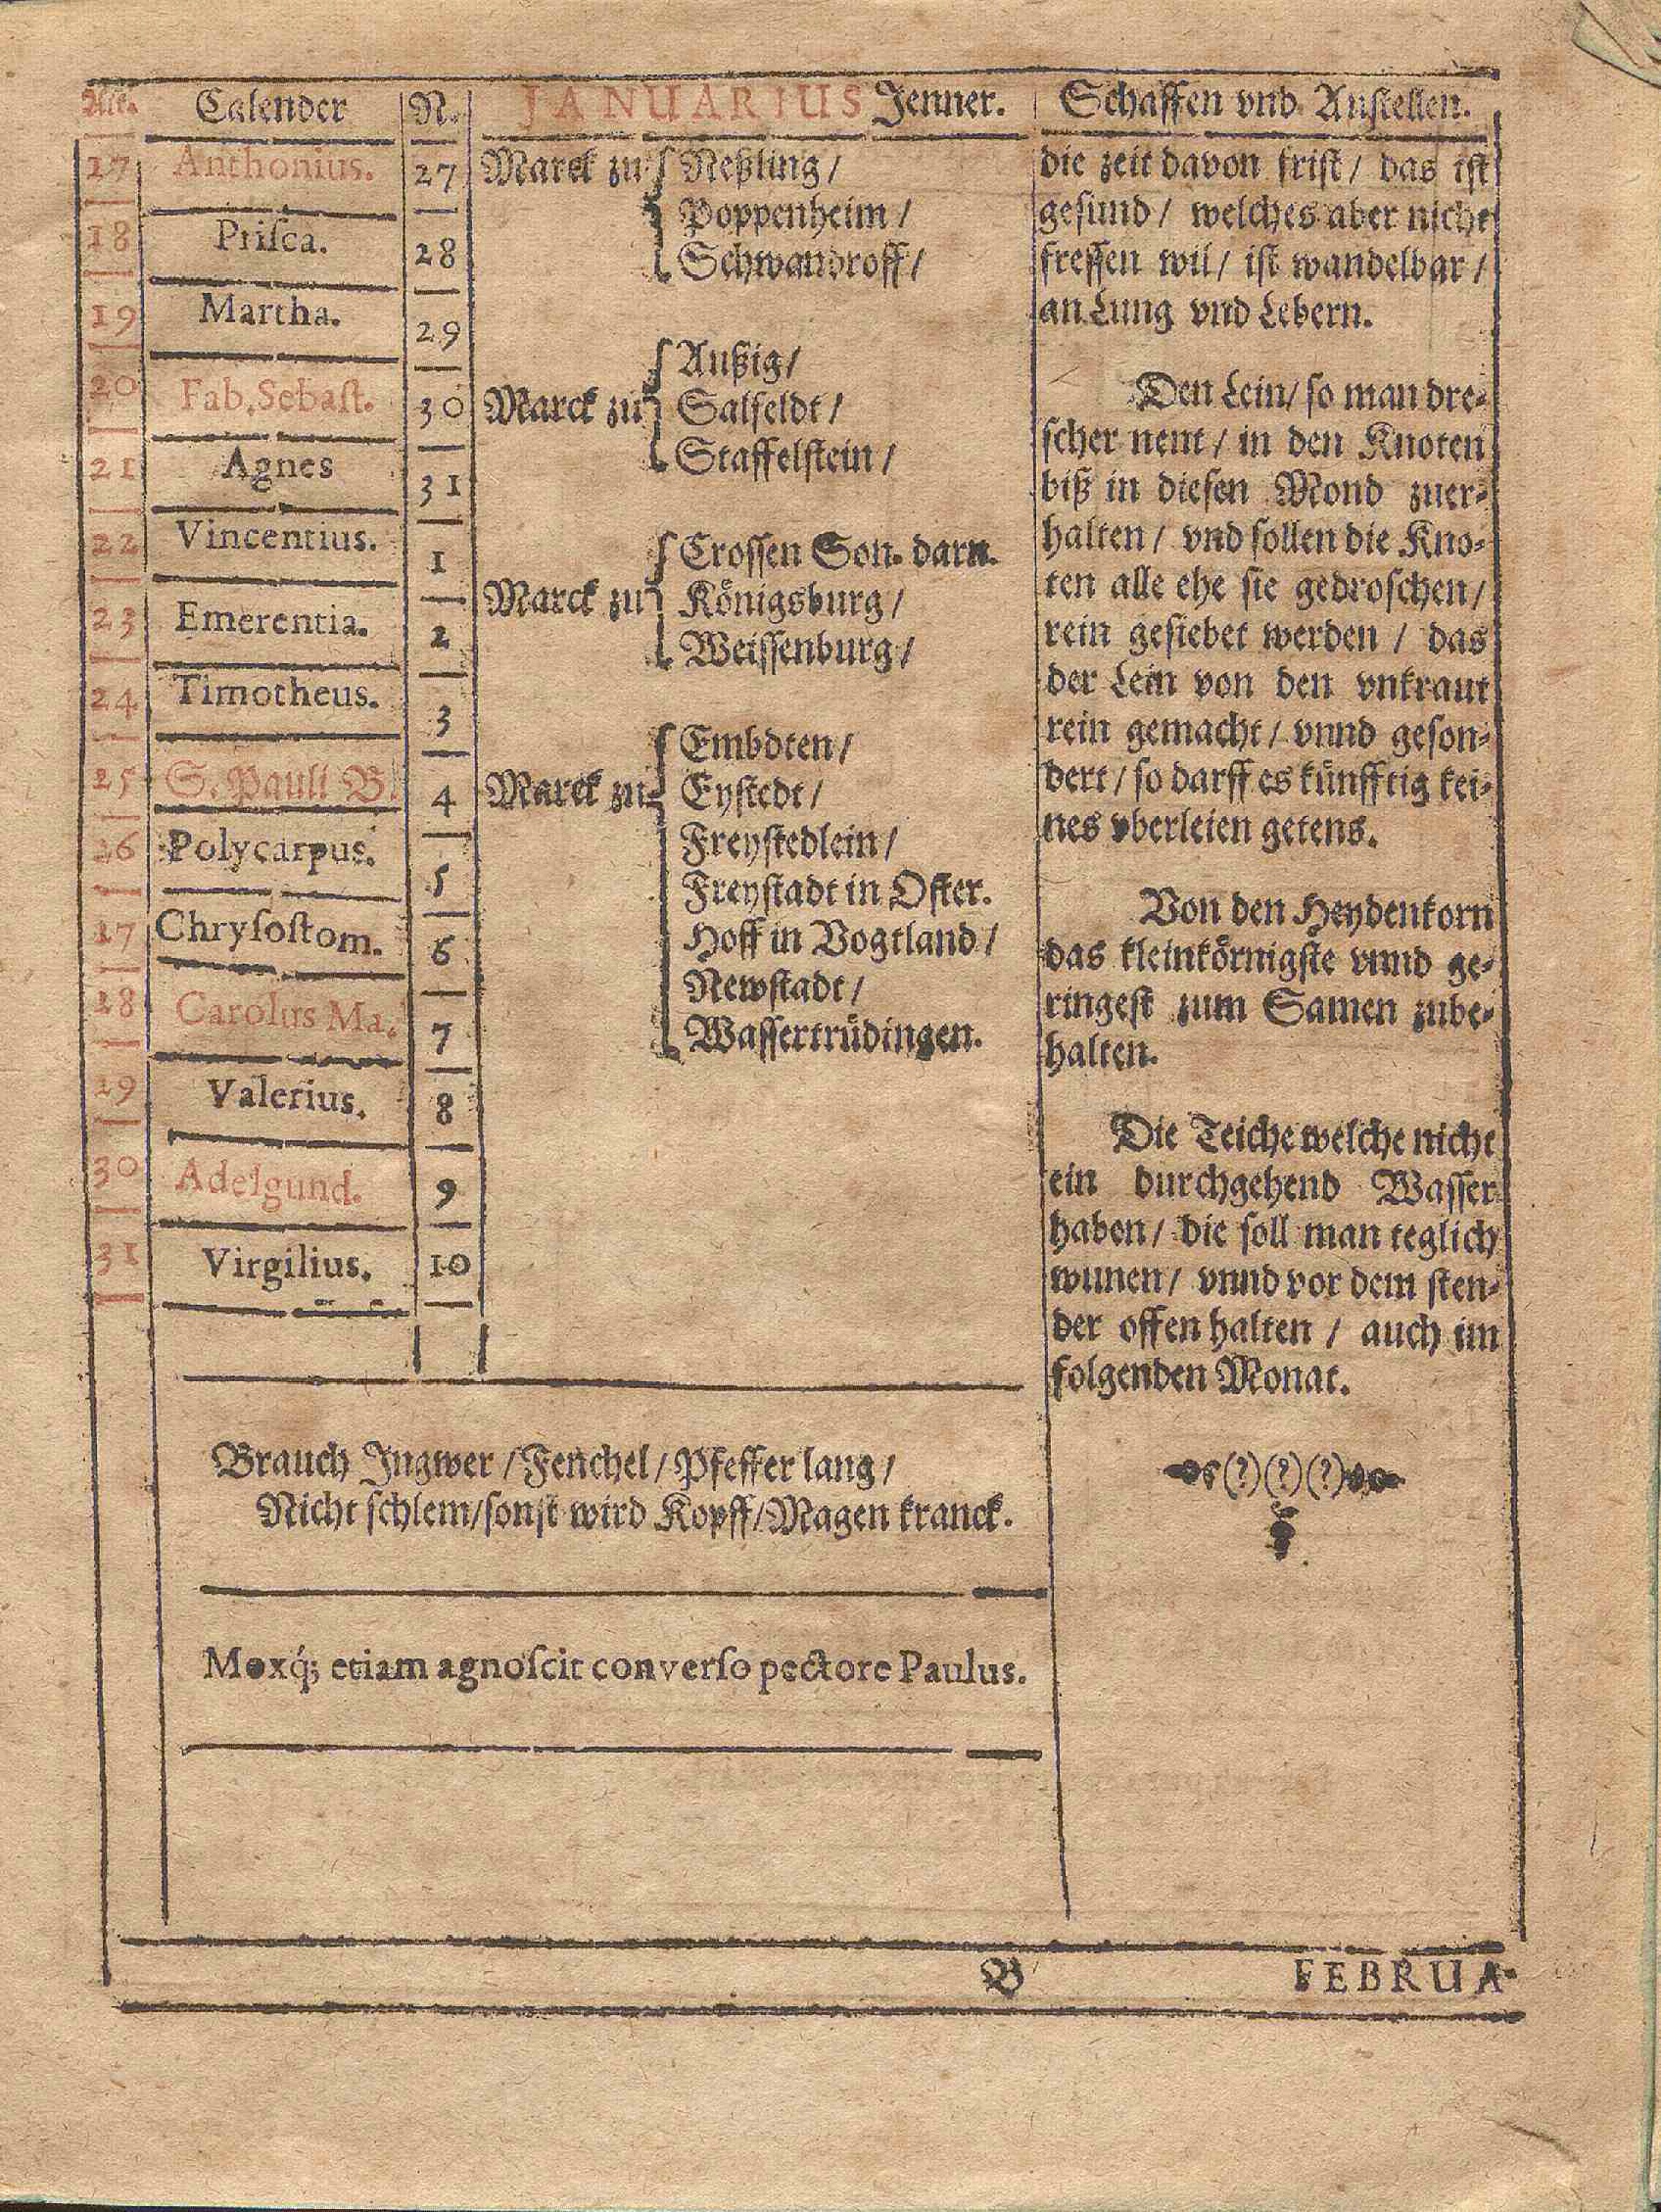 Alt. Calender N. JANUARIUS Jenner. Schaffen vnd Anstellen.
17 Anthonius. 27
18 Priſca. 28
19 Martha. 29
20 Fab. Sebaſt. 30
21 Agnes 31
22 Vincentius. 1
23 Emerentia. 2
24 Timotheus. 3
25 S. Pauli B. 4
26 Polycarpus. 5
27 Chryſoſtom. 6
28 Carolus Ma. 7
29 Valerius. 8
30 Adelgund. 9
31 Virgilius. 10
Marck zu Neßling /
Poppenheim /
Schwandroff /
Außig /
Marck zu Salfeldt /
Staffelſtein /
Croſſen Son. darn.
Marck zu Königsburg /
Weiſſenburg /
Embdten /
Marck zu Eyſtedt /
Freyſtedlein /
Freyſtadt in Oſter.
Hoff in Vogtland /
Newſtadt /
Waſſertrüdingen.
die zeit davon friſt / das iſt
geſund / welches aber nicht
freſſen wil / iſt wandelbar /
an Lung vnd Lebern.
Den Lein / ſo man dre-
ſcher nent / in den Knoten
biß in dieſen Mond zuer-
halten / vnd ſollen die Kno-
ten alle ehe ſie gedroſchen /
rein geſiebet werden / das
der Lein von den vnkraut
rein gemacht / vnnd geſon-
dert / ſo darff es künfftig kei-
nes vberleien getens.
Von den Heydenkorn
das kleinkörnigſte vnnd ge-
ringeſt zum Samen zube-
halten.
Die Teiche welche nicht
ein durchgehend Waſſer
haben / die ſoll man teglich
wunen / vnnd vor dem ſten-
der offen halten / auch im
folgenden Monat.
Brauch Ingwer / Fenchel / Pfeffer lang /
Nicht ſchlem / ſonſt wird Kopff / Magen kranck.
(?)(?)(?)
Moxq́; etiam agnoſcit converſo pectore Paulus.
B FEBRUA-